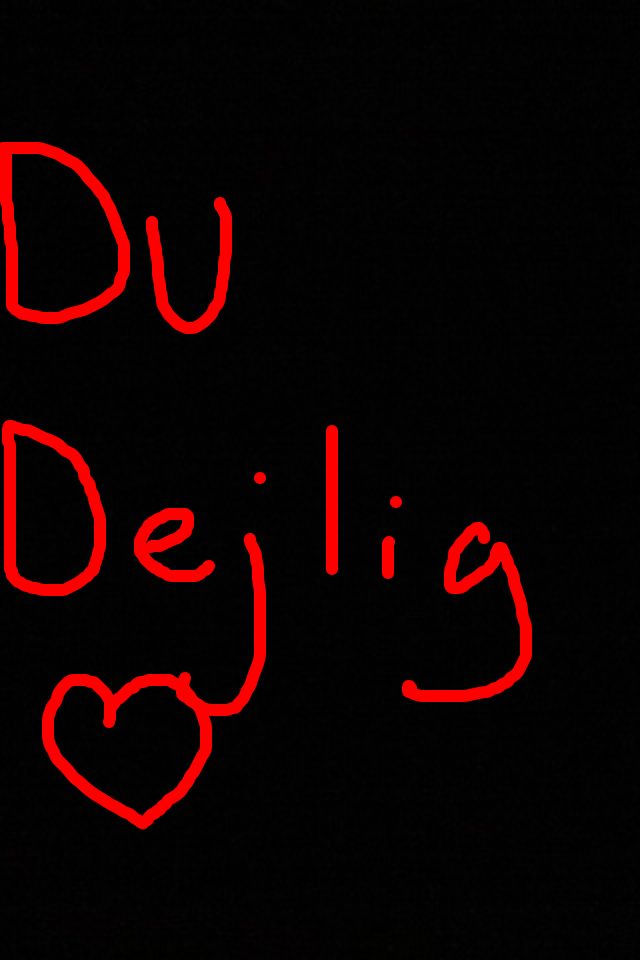 Du
Dejlig